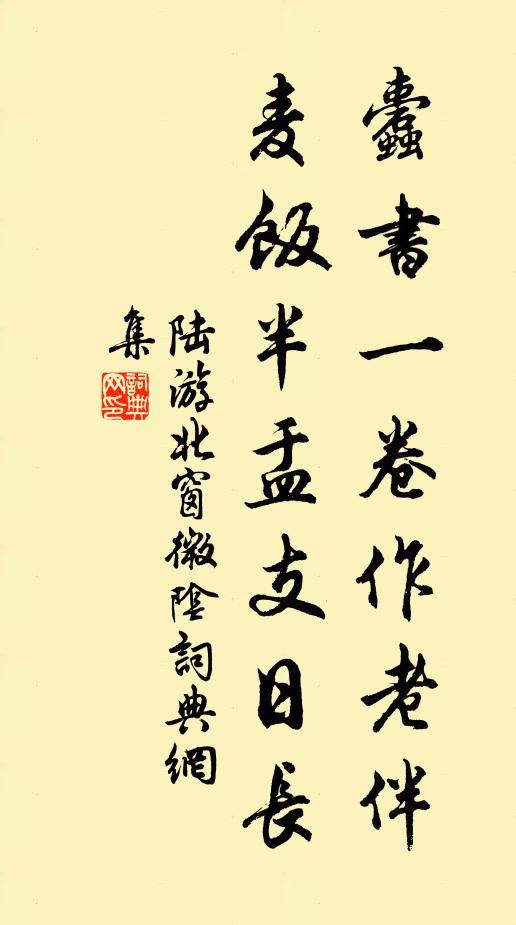 蠹書一卷作老伴
麦飯半盂支日長
陆游北窗微陰詞典網
集
詞典网印